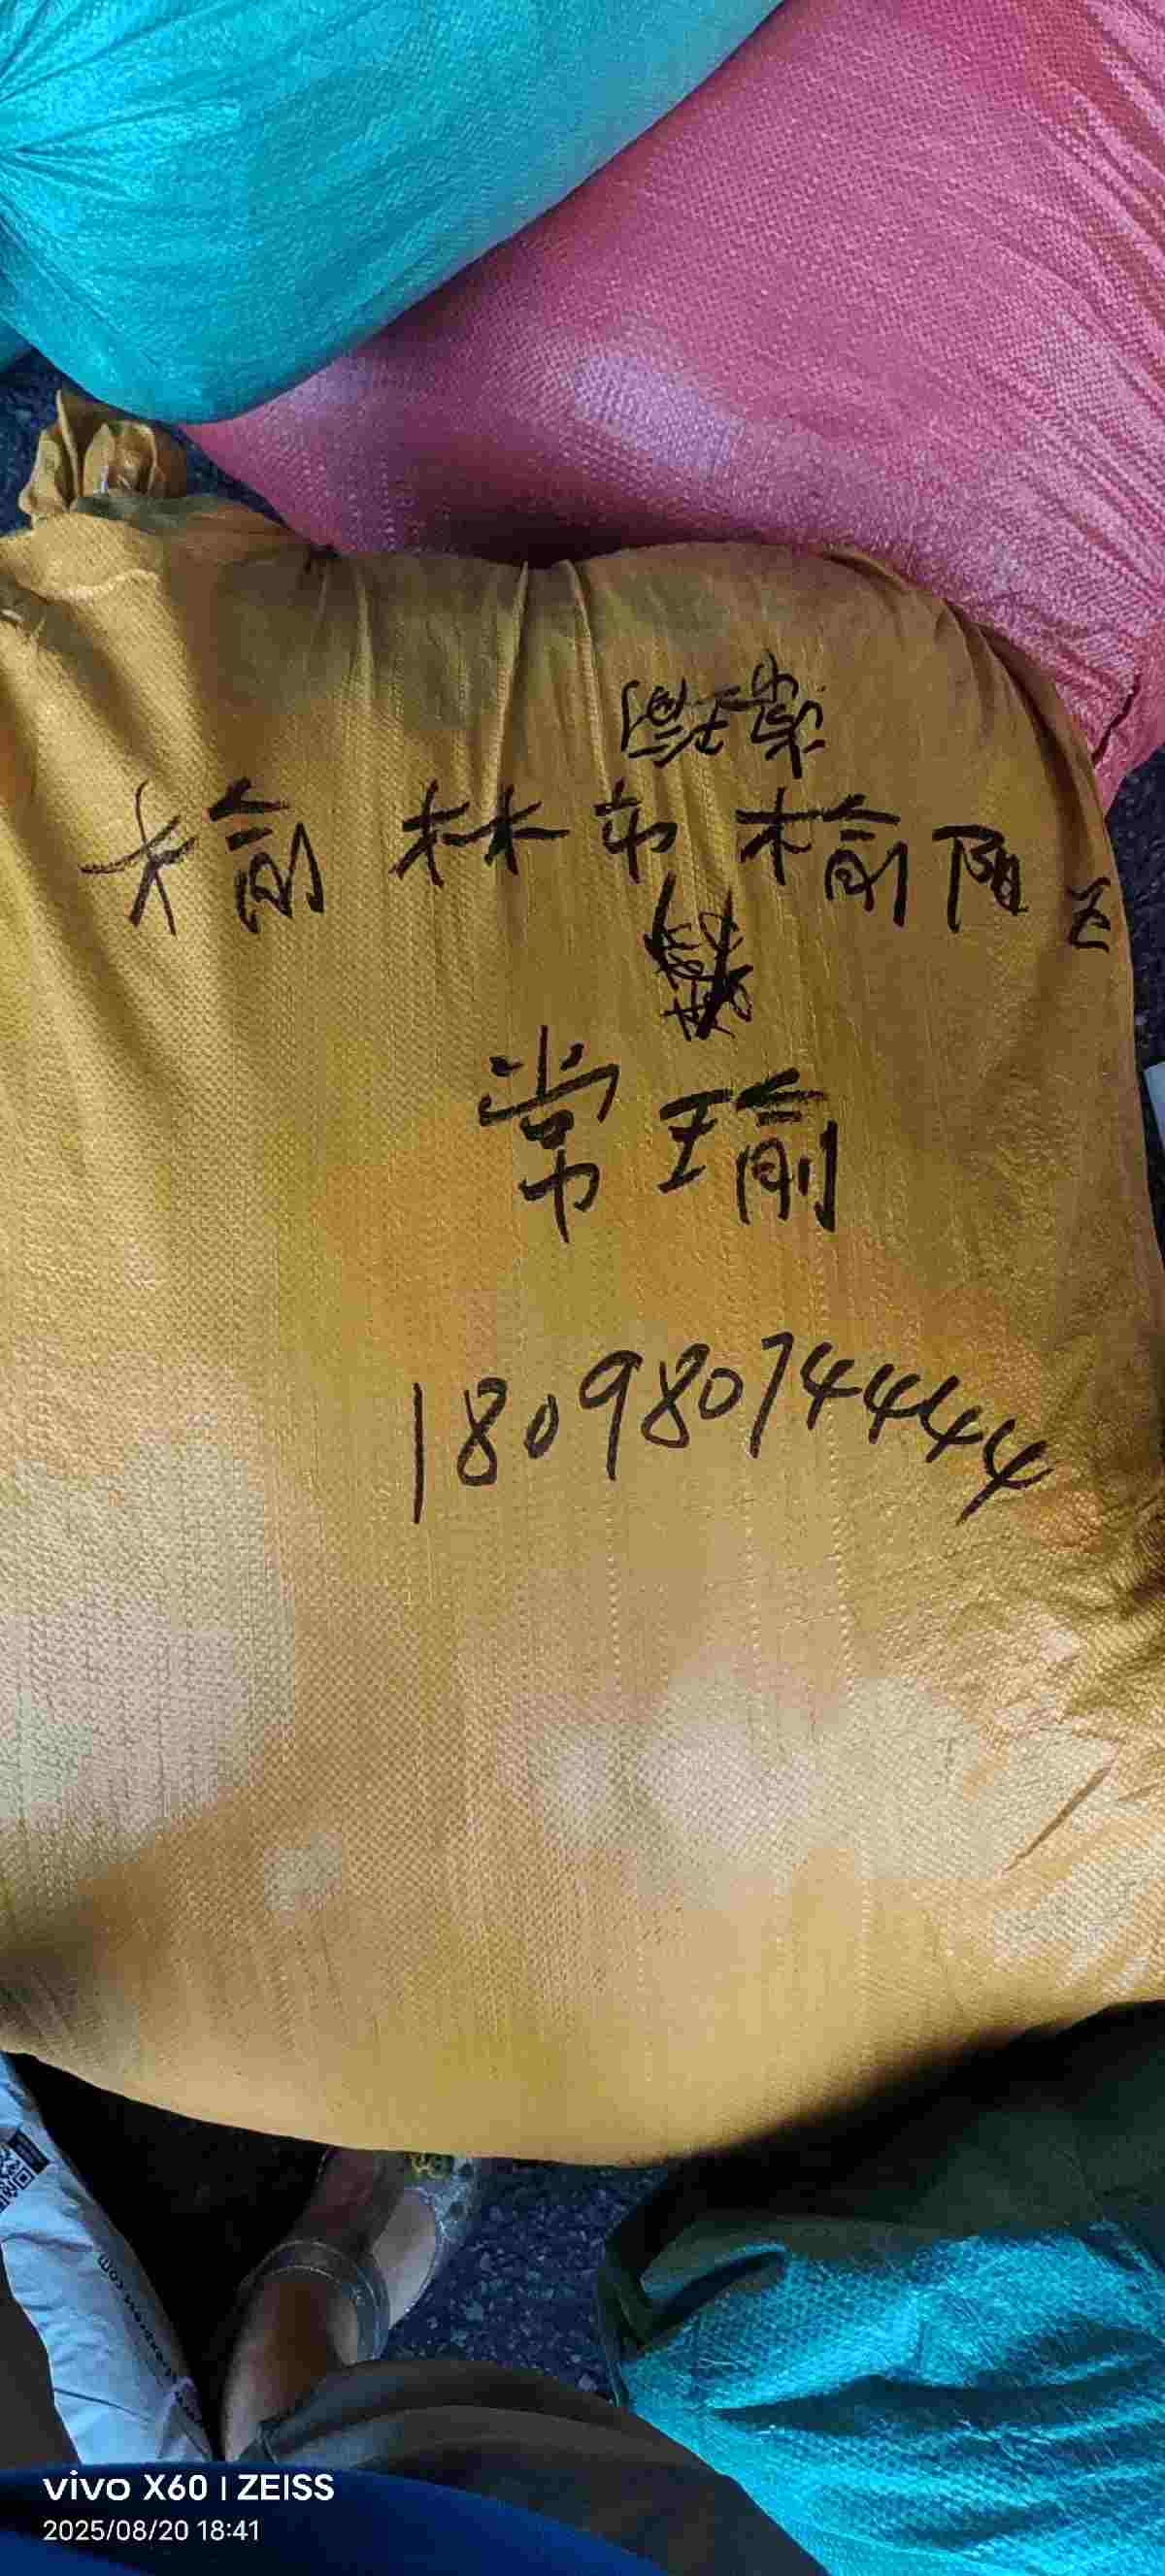 榆林市榆阳区
常瑜
18098074444
vivo X60 | ZEISS
2025/08/20 18:41